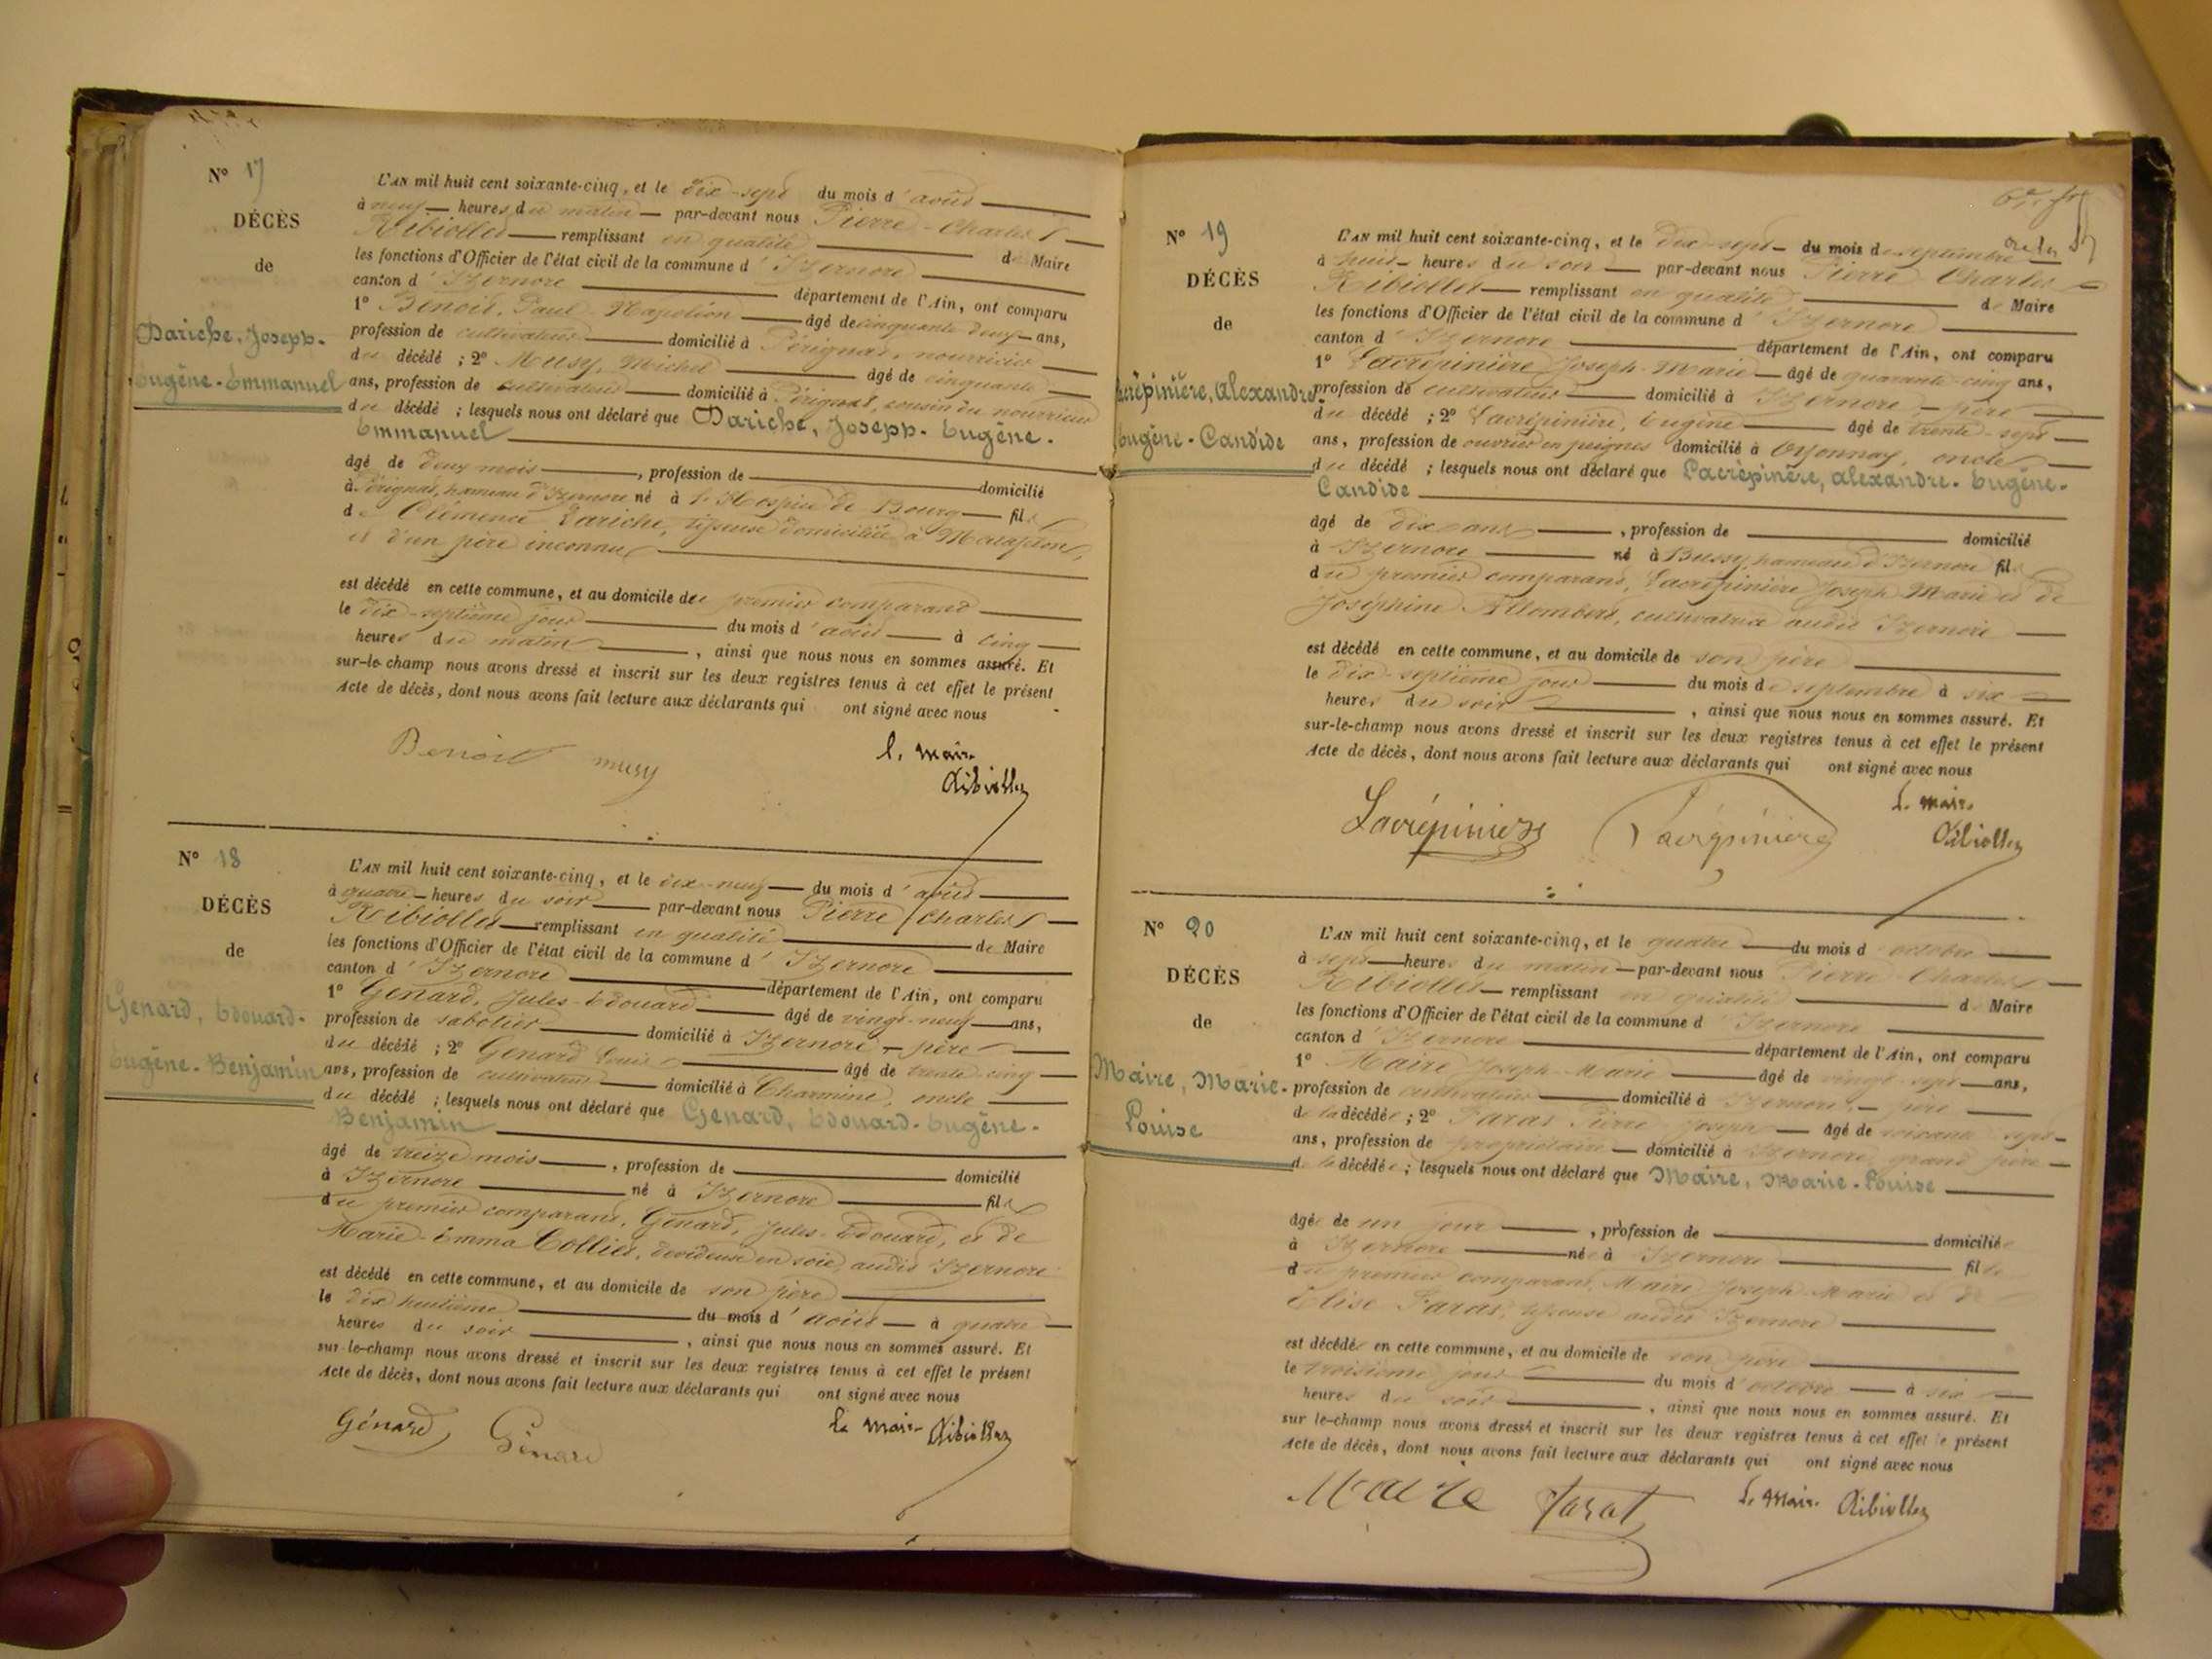 N° 17
DÉCÈS
de
Dariche, Joseph-
Eugène-Emmanuel
L'AN mil huit cent soixante-cinq, et le dix-sept du mois d'août
à neuf heures du matin par-devant nous Pierre-Charles
Ribiollet remplissant en qualité de Maire
les fonctions d'Officier de l'état civil de la commune d'Izernore
canton d'Izernore département de l'Ain, ont comparu
1° Benoit, Paul-Napoléon âgé de cinquante deux ans,
profession de cultivateur domicilié à Pérignat, nourricier
du décédé ; 2° Musy, Michel âgé de cinquante
ans, profession de cultivateur domicilié à Pérignat, cousin du nourricier
du décédé ; lesquels nous ont déclaré que Dariche, Joseph-Eugène-
Emmanuel
âgé de deux mois, profession de domicilié
à Pérignat, hameau d'Izernore né à l'Hospice de Bourg fils
de Clémence Dariche, tisseuse domiciliée à
et d'un père inconnu
est décédé en cette commune, et au domicile du premier comparant
le dix-septième jour du mois d'août à cinq
heures du matin, ainsi que nous nous en sommes assuré. Et
sur-le-champ nous avons dressé et inscrit sur les deux registres tenus à cet effet le présent
Acte de décès, dont nous avons fait lecture aux déclarants qui ont signé avec nous
Benoit musy le maire
Ribiollet
N° 18
DÉCÈS
de
Genard, Edouard-
Eugène-Benjamin
L'AN mil huit cent soixante-cinq, et le dix-neuf du mois d'août
à quatre heures du soir par-devant nous Pierre Charles
Ribiollet remplissant en qualité de Maire
les fonctions d'Officier de l'état civil de la commune d'Izernore
canton d'Izernore département de l'Ain, ont comparu
1° Genard, Jules-Edouard âgé de vingt-neuf ans,
profession de sabotier domicilié à Izernore, père
du décédé ; 2° Genard Louis âgé de trente-cinq
ans, profession de cultivateur domicilié à Charmine, oncle
du décédé ; lesquels nous ont déclaré que Genard, Edouard-Eugène-
Benjamin
âgé de treize mois, profession de domicilié
à Izernore né à Izernore fils
du premier comparant, Genard, Jules-Edouard, et de
Marie-Emma Collier, devideuse en soie, audit Izernore
est décédé en cette commune, et au domicile de son père
le dix huitième du mois d'août à quatre
heures du soir, ainsi que nous nous en sommes assuré. Et
sur-le-champ nous avons dressé et inscrit sur les deux registres tenus à cet effet le présent
Acte de décès, dont nous avons fait lecture aux déclarants qui ont signé avec nous
Génard Génard le maire Ribiollet
N° 19
DÉCÈS
de
Lacrépinière, Alexandre-
Eugène-Candide
L'AN mil huit cent soixante-cinq, et le dix-sept du mois de septembre
à huit heures du soir par-devant nous Pierre Charles
Ribiollet remplissant en qualité de Maire
les fonctions d'Officier de l'état civil de la commune d'Izernore
canton d'Izernore département de l'Ain, ont comparu
1° Lacrépinière Joseph-Marie âgé de quarante-cinq ans,
profession de cultivateur domicilié à Izernore, père
du décédé ; 2° Lacrépinière, Eugène âgé de trente-sept
ans, profession de ouvrier en peignes domicilié à Oyonnax, oncle
du décédé ; lesquels nous ont déclaré que Lacrépinère, Alexandre-Eugène-
Candide
âgé de dix ans, profession de domicilié
à Izernore né à Bussy, hameau d'Izernore fils
du premier comparant, Lacrépinière Joseph Marie et de
Joséphine Allombert, cultivatrice audit Izernore
est décédé en cette commune, et au domicile de son père
le dix-septième jour du mois de septembre à six
heures du soir, ainsi que nous nous en sommes assuré. Et
sur-le-champ nous avons dressé et inscrit sur les deux registres tenus à cet effet le présent
Acte de décès, dont nous avons fait lecture aux déclarants qui ont signé avec nous
Lacrépinière Lacrépinière le maire
Ribiollet
N° 20
DÉCÈS
de
Maire, Marie-
Louise
L'AN mil huit cent soixante-cinq, et le quatre du mois d'octobre
à sept heures du matin par-devant nous Pierre Charles
Ribiollet remplissant en qualité de Maire
les fonctions d'Officier de l'état civil de la commune d'Izernore
canton d'Izernore département de l'Ain, ont comparu
1° Maire Joseph-Marie âgé de vingt-sept ans,
profession de cultivateur domicilié à Izernore, père
de la décédée ; 2° Farat Pierre Joseph âgé de soixante sept
ans, profession de propriétaire domicilié à Izernore, grand père
de la décédée ; lesquels nous ont déclaré que Maire, Marie-Louise
âgée de un jour, profession de domiciliée
à Izernore née à Izernore fille
du premier comparant, Maire Joseph Marie et de
Elise Farat, tisseuse audit Izernore
est décédée en cette commune, et au domicile de son père
le troisième jour du mois d'octobre à six
heures du soir, ainsi que nous nous en sommes assuré. Et
sur-le-champ nous avons dressé et inscrit sur les deux registres tenus à cet effet le présent
Acte de décès, dont nous avons fait lecture aux déclarants qui ont signé avec nous
Maire Farat le Maire Ribiollet